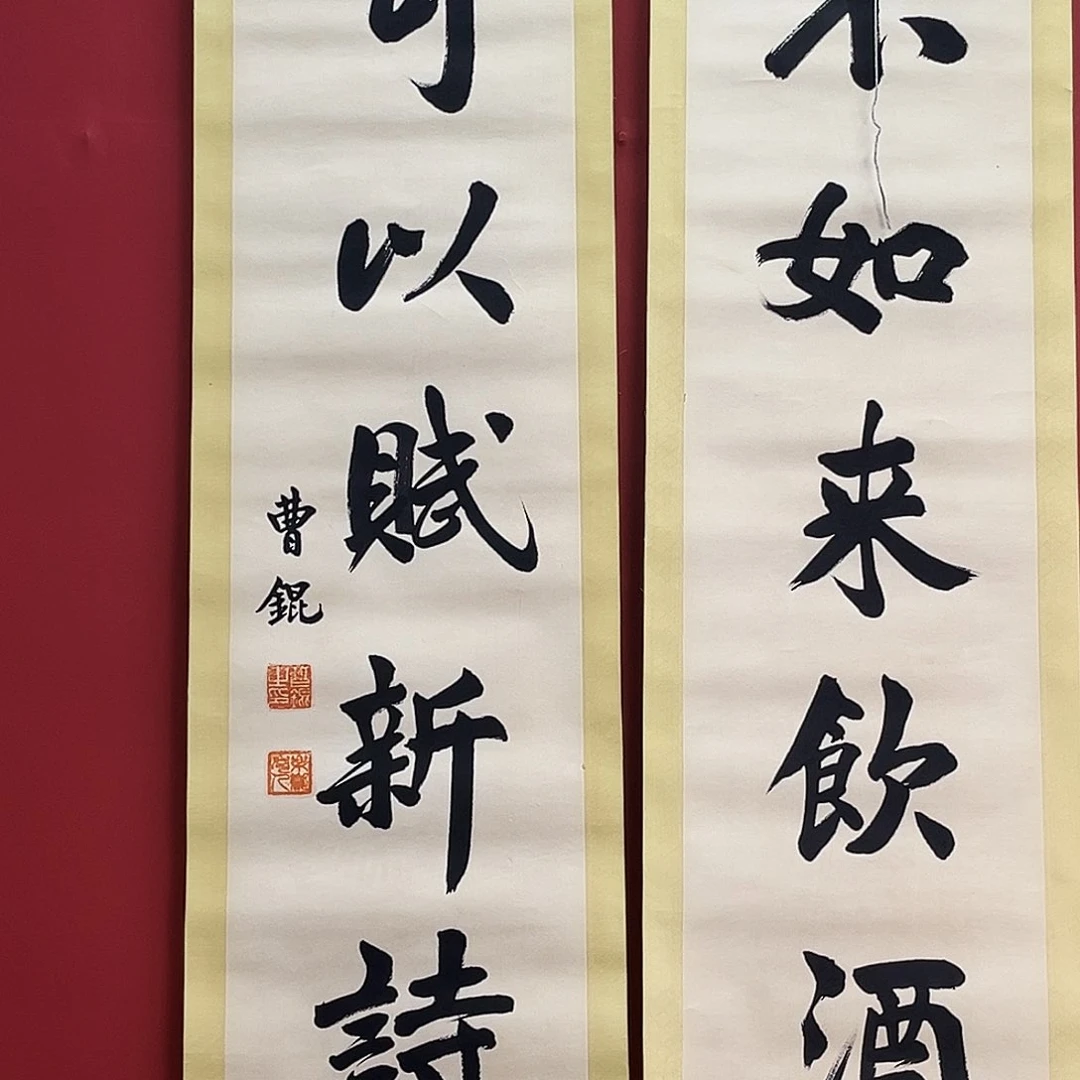 不如来飲酒
可以賦新詩
曹錕